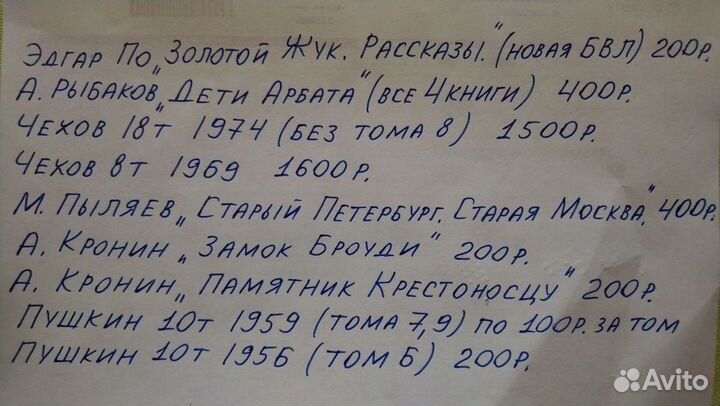 Эдгар По „Золотой Жук. Рассказы." (новая БВЛ) 200р.
А. Рыбаков „Дети Арбата" (все 4 книги) 400р.
Чехов 18т 1974 (без тома 8) 1500р.
Чехов 8т 1969 1600р.
М. Пыляев „Старый Петербург. Старая Москва." 400р.
А. Кронин „Замок Броуди" 200р.
А. Кронин „Памятник Крестоносцу" 200р.
Пушкин 10т 1959 (тома 7,9) по 100р. за том
Пушкин 10т 1956 (том 6) 200р.
Avito